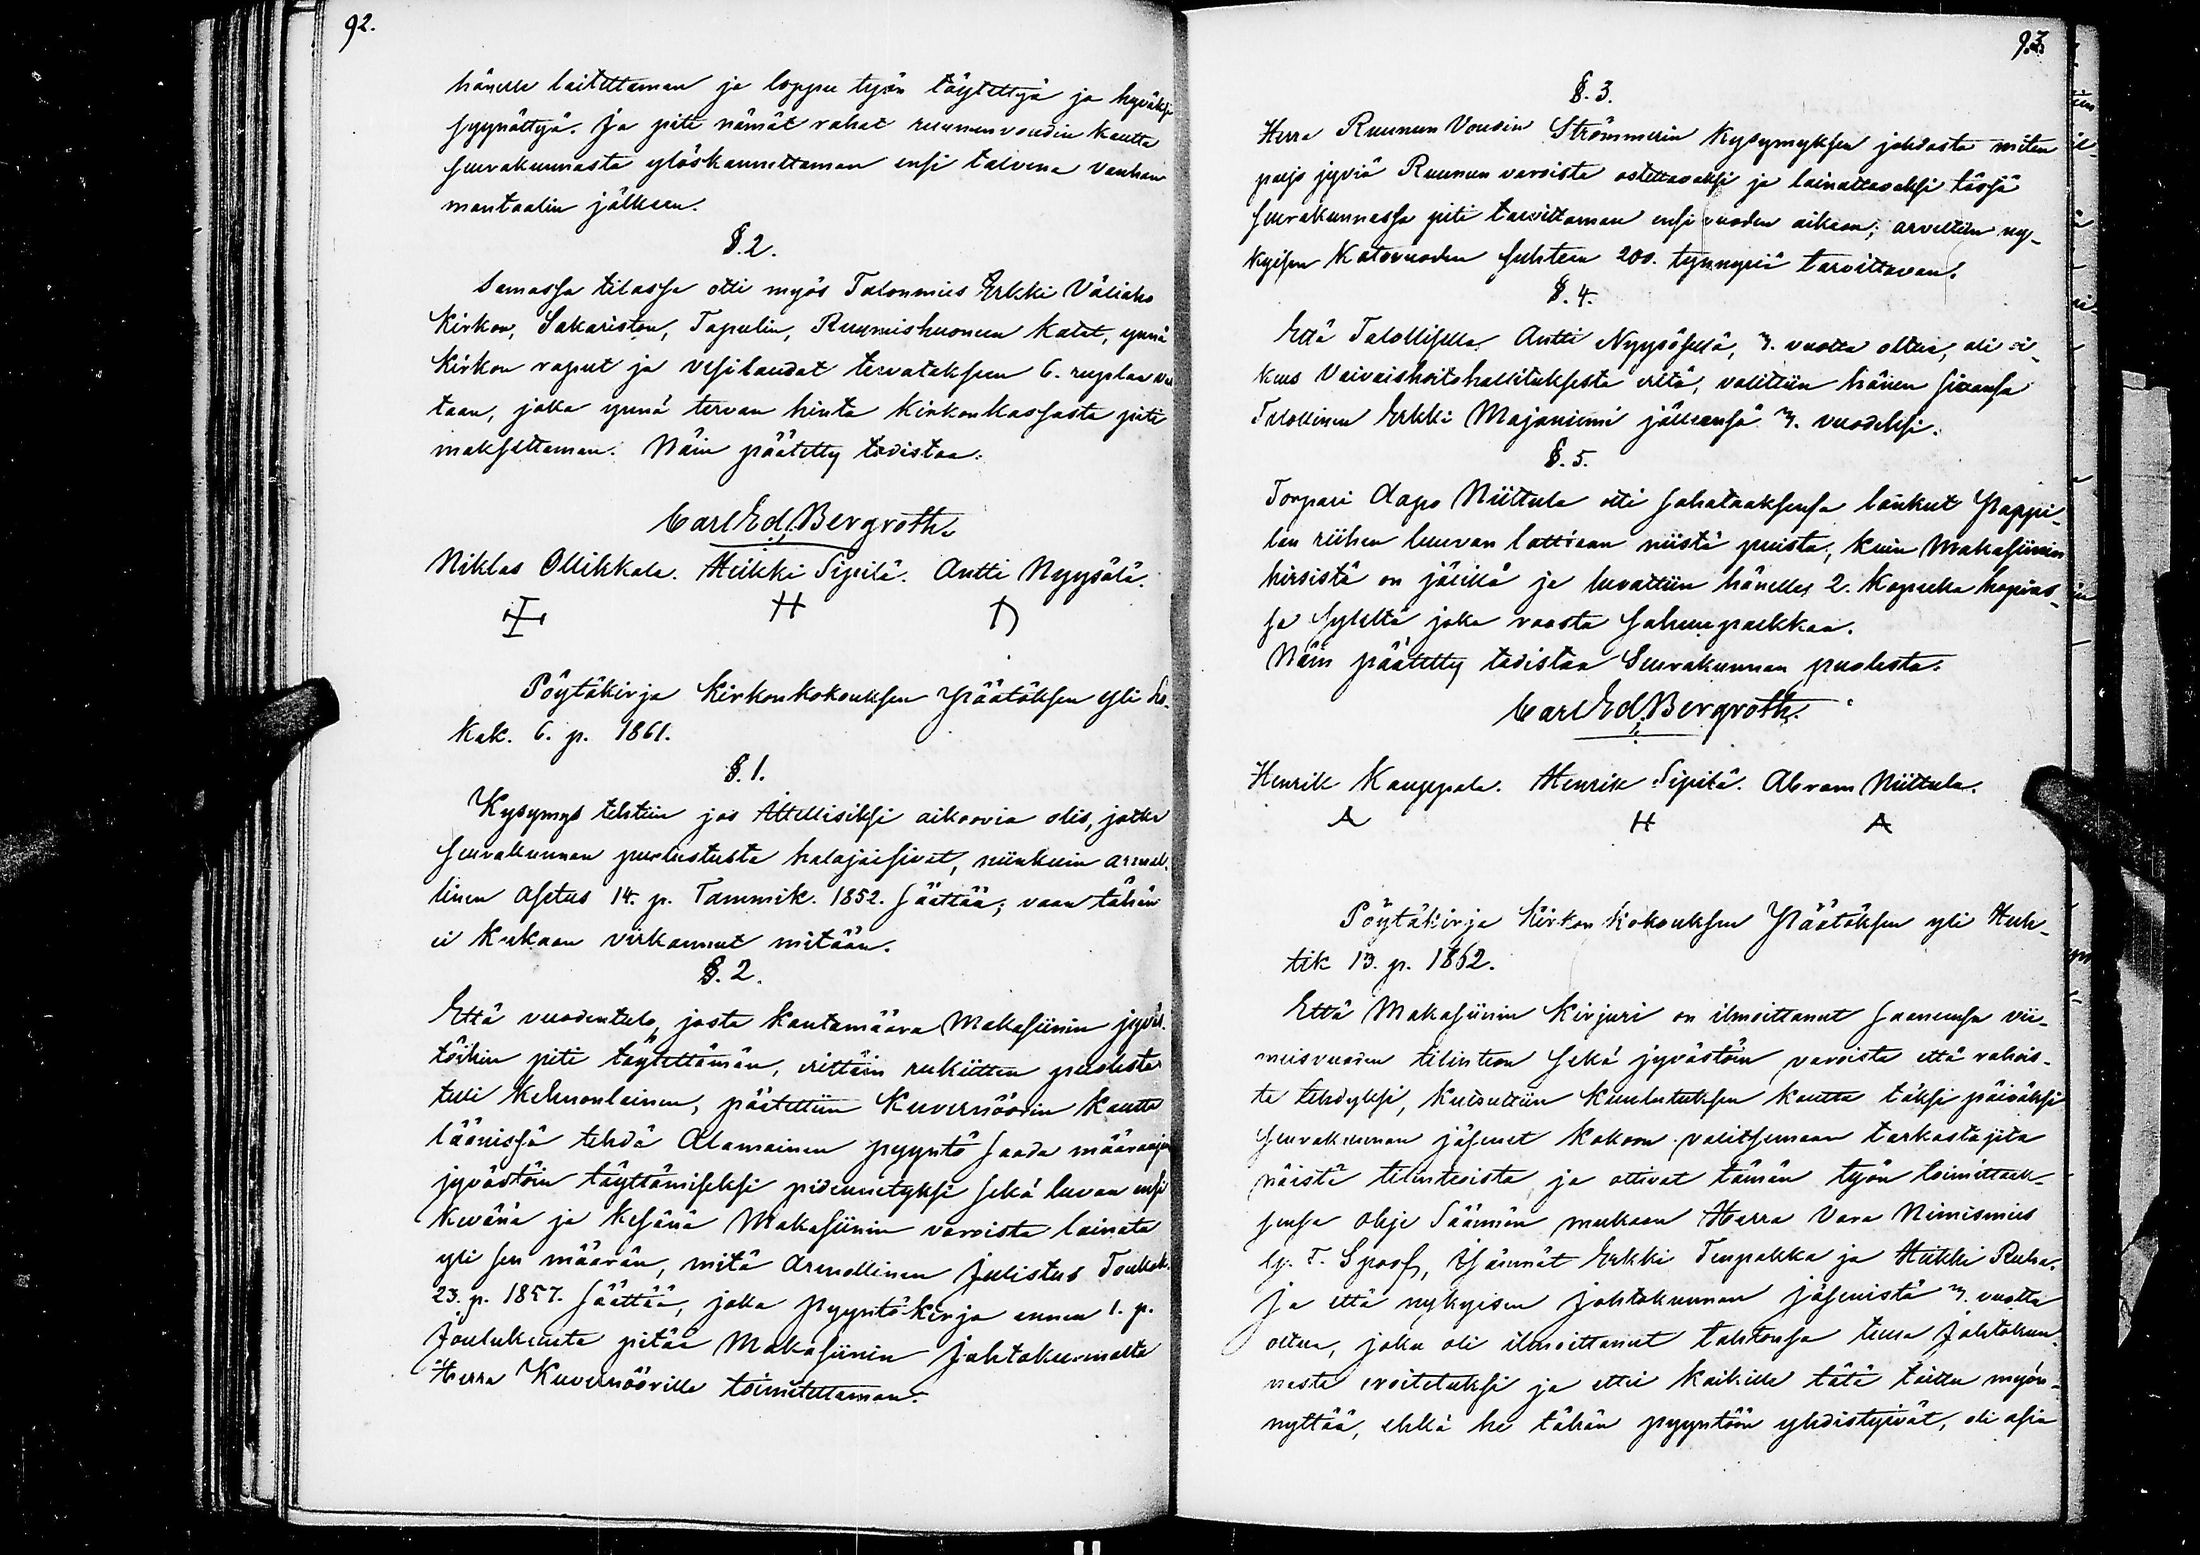 92.
hänelle laitettaman ja loppu työn täytettyä ja hyväksi
syynättyä. Ja piti nämät rahat ruununvoudin kautta
seurakunnasta ylöskannettaman ensi talvena vanhan
mantaalin jälkeen.
§. 2.
Samassa tilassa otti myös Talonmies Erkki Väliaho
Kirkon, Sakariston, Tapulin, Ruumishuoneen katot, ynnä
Kirkon raput ja vesilaudat tervatakseen 6. ruplan
taan, jotka ynnä tervan hinta Kirkonkassasta piti
maksettaman. Näin päätetty todistaa:
Carl Ed. Bergroth.
Niklas Ollikkala. Heikki Sipilä. Antti Nyysölä.
Pöytäkirja Kirkonkokouksen Päätöksen yli Lo-
kak. 6. p. 1861.
§. 1.
Kysymys tehtiin jos Attellisiksi aikoovia olis, jotka
seurakunnan puolustusta halajaisivat, niinkuin armol-
linen Asetus 14. p. Tammik. 1852. säättää; vaan tähän
ei kukaan virkannut mitään.
§. 2.
Että vuodentulo, josta kantamäärä Makasiinin jyväs-
töihin piti täytettämän, erittäin rukiitten puolesta
tuli kehnonlainen, päätettiin Kuvernöörin kautta
läänissä tehdä Alamainen pyyntö saada määräajan
jyvästöin täyttämiseksi pidennetyksi sekä luvan ensi
Kevänä ja Kesänä Makasiinin varoista lainata
yli sen määrän, mitä Armollinen Julistus Toukok.
23. p. 1857. säättää, jolla pyyntö-kirja ennen 1. p.
Joulukuuta pitää Makasiinin Johtokunnalta
Herra Kuvernöörille toimitettaman.
93.
§. 3.
Herra Ruunun Voudin Strömmerin Kysymyksen johdosta miten
paljo jyviä Ruunun varoista ostettavaksi ja lainattavaksi tässä
seurakunnassa piti tarvittaman ensi vuoden aikaan; arveltiin ny-
kyisen Katovuoden suhteen 200. tynnyriä tarvittavan.
§. 4.
Että Talollisella Antti Nyysösellä, 3. vuotta oltua, oli oi-
keus Vaivaishoitohallituksesta eritä, valittiin hänen siaansa
Talollinen Erkki Majaniemi jälkeensä 3. vuodeksi.
§. 5.
Torpari Aapo Niittula otti sahataaksensa lankut Pappi-
lan riihen luuvan lattiaan niistä puista, kuin Makasiinin
hirsistä on jälillä ja luvattiin hänelle 2. Kopeekka hopias-
sa syleltä joka raosta sahuupalkkaa.
Näin päätetty todistaa Seurakunnan puolesta:
Carl Ed. Bergroth.
Henrik Kauppala. Henrik Sipilä. Abram Niittula.
Pöytäkirja Kirkon kokouksen Päätöksen yli Huh-
tik 13. p. 1862.
Että Makasiinin Kirjuri on ilmoittanut saaneensa vii-
meisvuoden tilinteon sekä jyvästöin varoista että rahois-
ta tehdyksi, kutsuttiin kuulutuksen kautta täksi päiväksi
seurakunnan jäsenet kokoon valitsemaan tarkastajita
näistä tilinteoista ja ottivat tämän työn toimittaak-
sensa Ohje Säännön mukaan Herra Vara Nimismies
G. T. Spoof, Isännät Erkki Tenpakka ja Heikki Ruha.
Ja että nykyisen Johtokunnan jäsenistä 3. vuotta
oltua, joku oli ilmoittanut tahtonsa tulla Johtokun-
nasta eroitetuksi ja ettei kaikille tätä taittu myön-
nyttää, ehkä he tähän pyyntöön yhdistyivät, oli asia